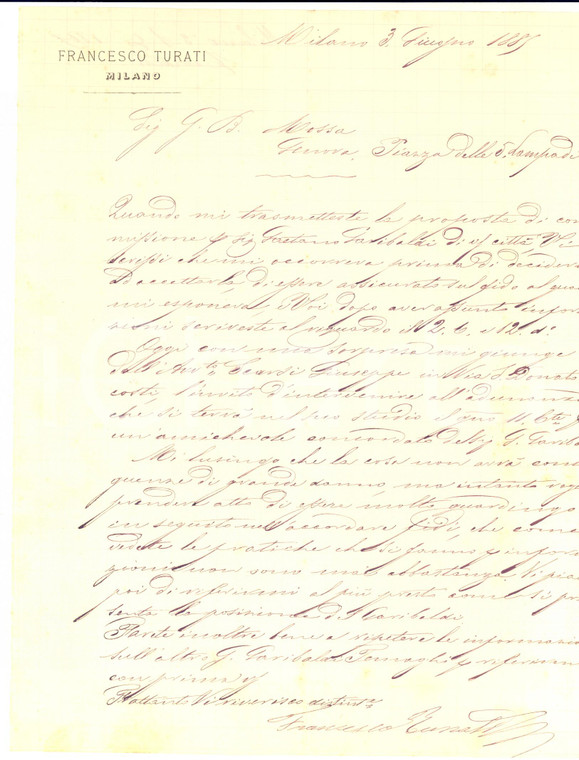 Milano 3. Giugno 1885
FRANCESCO TURATI
MILANO
Sig G. B. Mossa
Genova, Piazza delle 5 Lampadi
Quando mi trasmetteste la proposta di com
missione p Sig Gaetano Garibaldi di città, Vi
scrissi che mi occorreva prima di decidere
d'accettarla di essere assicurato sul fido al qual
mi esponeva, e Voi dopo aver assunto infor
sioni scriveste al riguardo il 2. 6. e 12. d:
Oggi con mia sorpresa mi giunge
dall'Avv. Scarsi Giuseppe in Via S. Donato
costì, l'invito d'intervenire all'adunanza
che si terrà nel suo studio il giorno 11 Cte p
un'amichevole concordato del Sig G. Garibal
Mi lusingo che la cosa non avrà conse
guenze di grande danno, ma intanto vog
prendere atto di essere molto guardingo
in seguito nell'accordare fidi, che come
vedete le pratiche che si fanno p infor
zioni non sono mai abbastanza. Vi piac
poi di riferirmi al più presto come si pre
senta la posizione di Garibaldi.
Farete inoltre bene a ripetere le informazio
sull'altro G. Garibaldi p riferirm
con prima
Frattanto Vi riverisco distint.e
Francesco Turati